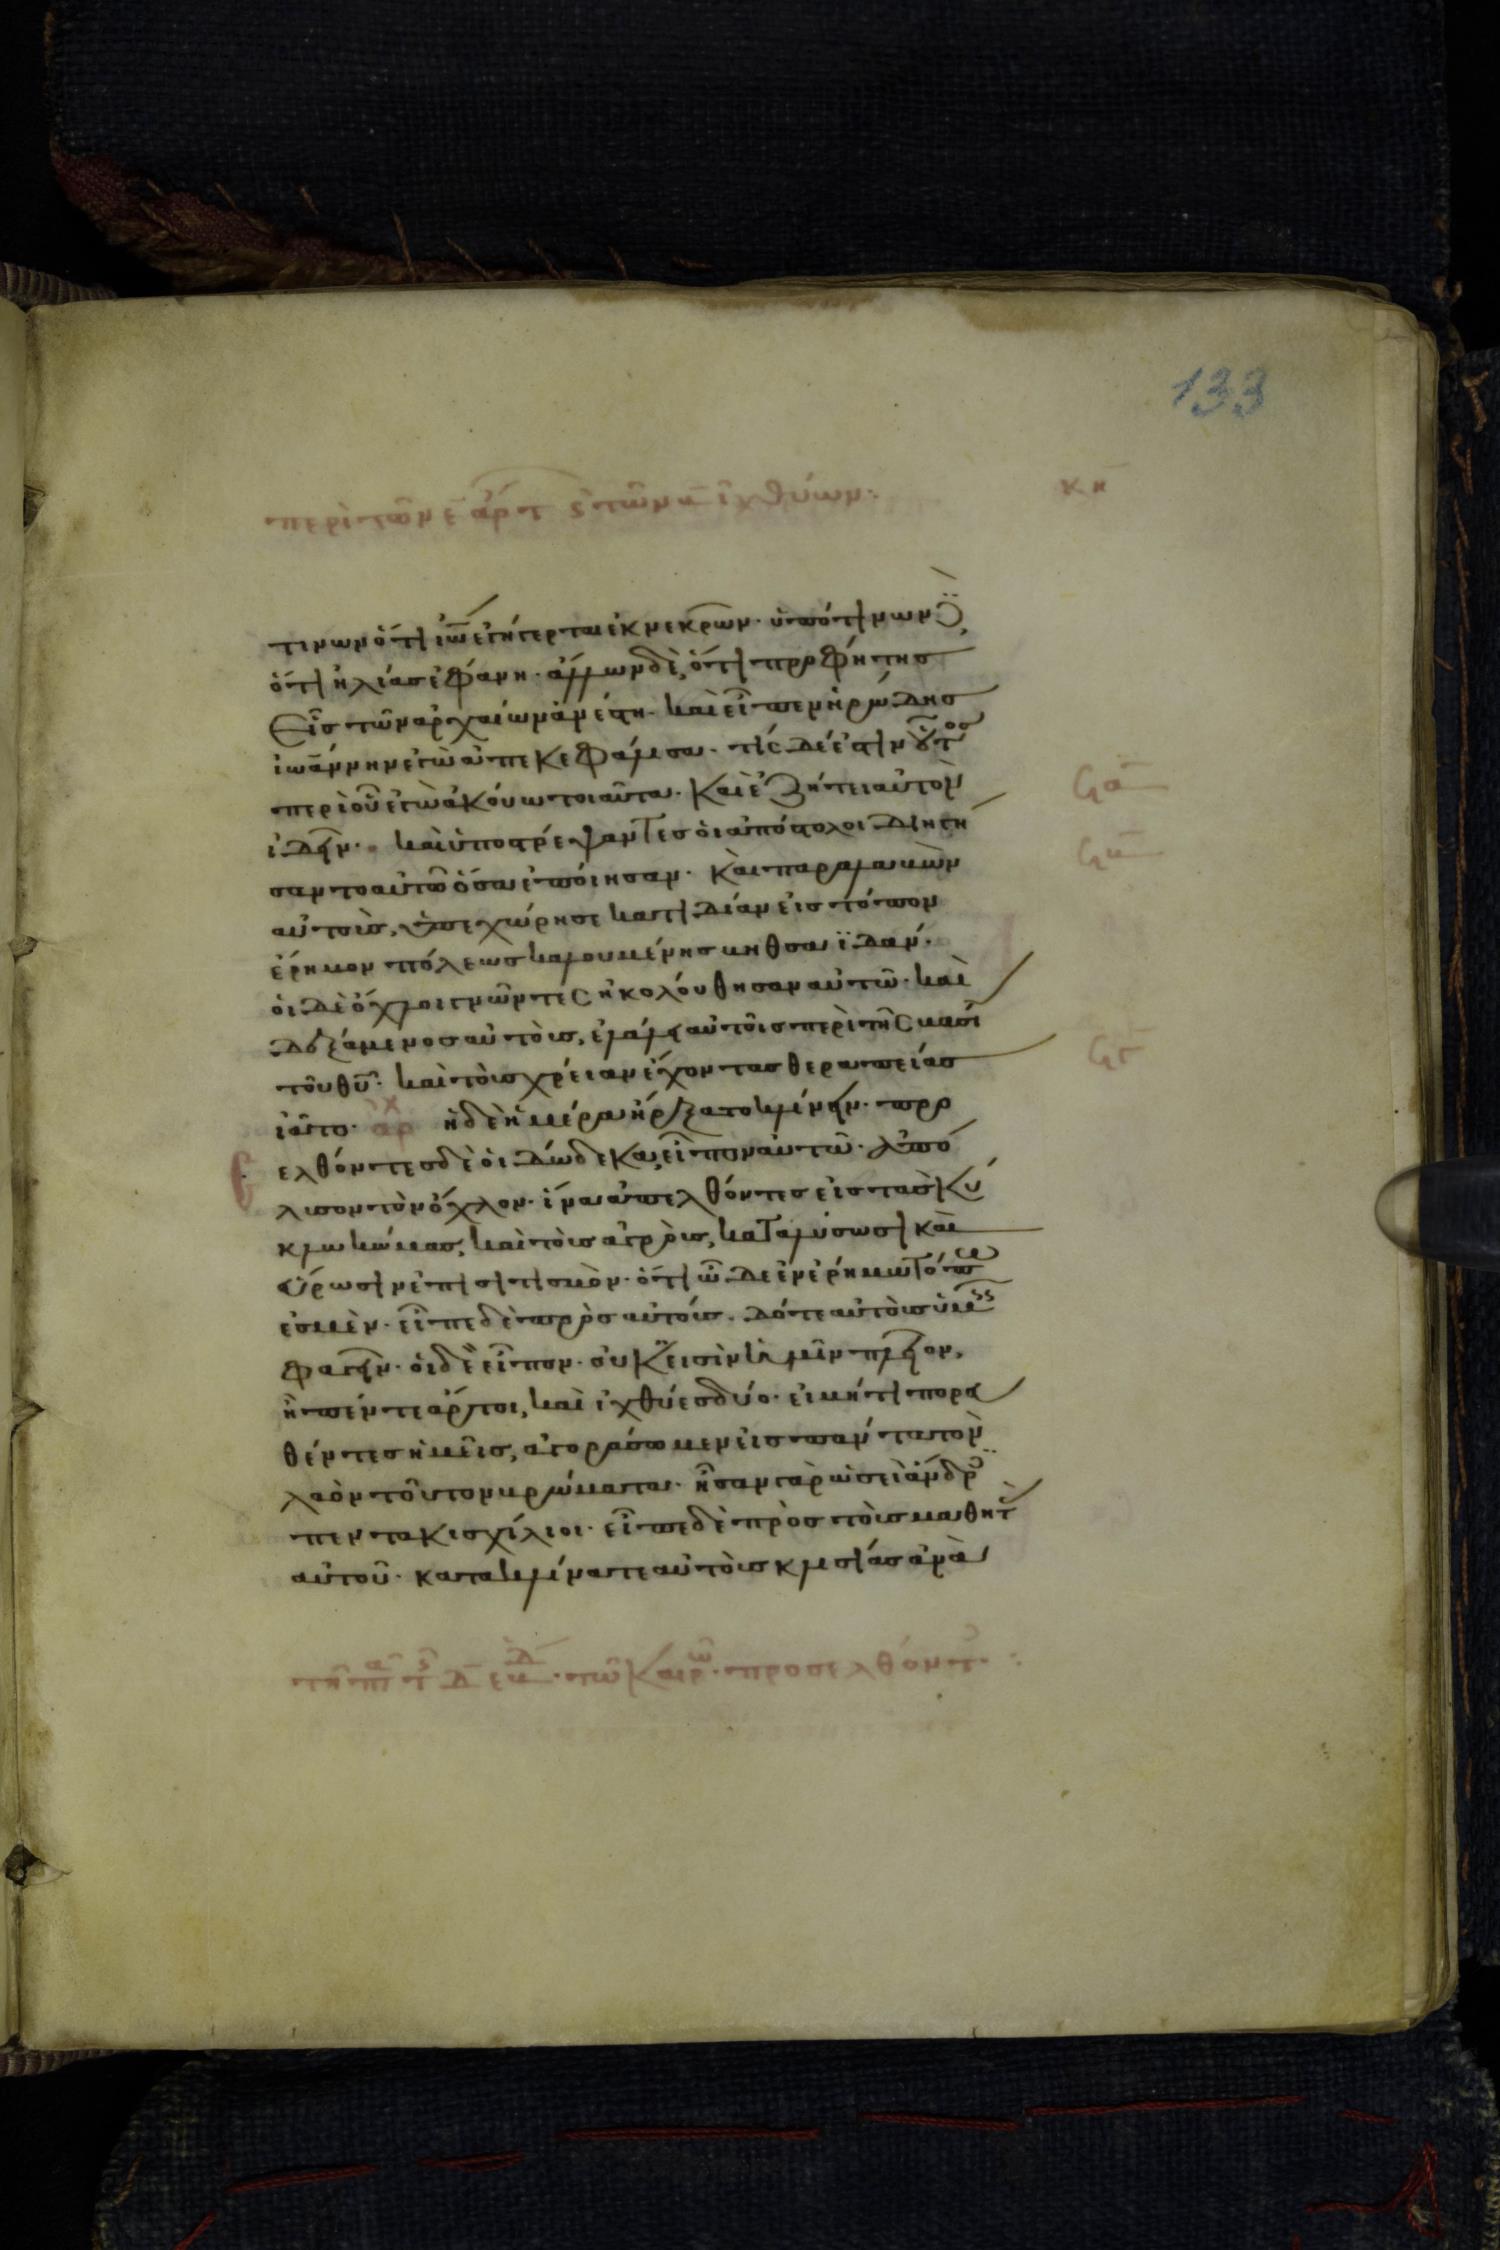 133
περὶ τῶν ε ἄρτ ϛ τῶν β ἰχθύων· κη
τινων ὅτι ἰω ἐγήγερται ἐκ νεκρῶν· ὑπό τινων δὲ
ὅτι ἠλίας ἐφάνη· ἄλλων δὲ, ὅτι προφήτης
εἷς τῶν ἀρχαίων ἀνέστη· καὶ εἶπεν ἡρώδης
ἰωάννην ἐγὼ ἀπεκεφάλισα· τίς δέ ἐστιν οὗτος
περὶ οὗ ἐγὼ ἀκούω τοιαῦτα· καὶ ἐζήτει αὐτὸν
ἰδεῖν· καὶ ὑποστρέψαντες οἱ ἀπόστολοι διηγή
σαντο αὐτῶ ὅσα ἐποίησαν· καὶ παραλαβὼν
αὐτοὺς, ὑπεχώρησε κατιδίαν εἰς τόπον
ἔρημον πόλεως καλουμένης βηθσαϊδάν·
οἱ δὲ ὄχλοι γνῶντες ἠκολούθησαν αὐτῶ· καὶ
δεξάμενος αὐτοὺς, ἐλάλει αὐτοῖς περὶ τῆς βασι
τοῦ θυ· καὶ τοὺς χρείαν ἔχοντας θεραπείας
ἰᾶτο· αρχ ἡ δὲ ἡμέρα ἤρξατο κλίνειν· προσ
ελθόντες δὲ οἱ δώδεκα, εἶπον αὐτῶ· ἀπό
λυσον τὸν ὄχλον· ἵνα ἀπελθόντες εἰς τὰς κύ
κλω κώμας, καὶ τοὺς ἀγροὺς, καταλύσωσι καὶ
εὕρωσιν ἐπισιτισμὸν· ὅτι ὧδε ἐν ἐρήμω τόπω
ἐσμὲν· εἶπε δὲ πρὸς αὐτούς· δότε αὐτοῖς ὑμεῖς
φαγεῖν· οἱ δὲ εἶπον· οὐκ εἰσὶν ἡμῖν πλεῖον,
ἢ πέντε ἄρτοι, καὶ ἰχθύες δύο· εἰ μήτι πορευ
θέντες ἡμεῖς, ἀγοράσωμεν εἰς πάντα τὸν
λαὸν τοῦτον βρώματα· ἦσαν γὰρ ὡσεὶ ἄνδρες
πεντακισχίλιοι· εἶπε δὲ πρὸς τοὺς μαθητὰς
αὐτοῦ· κατακλίνατε αὐτοὺς κλισίας ἀνὰ